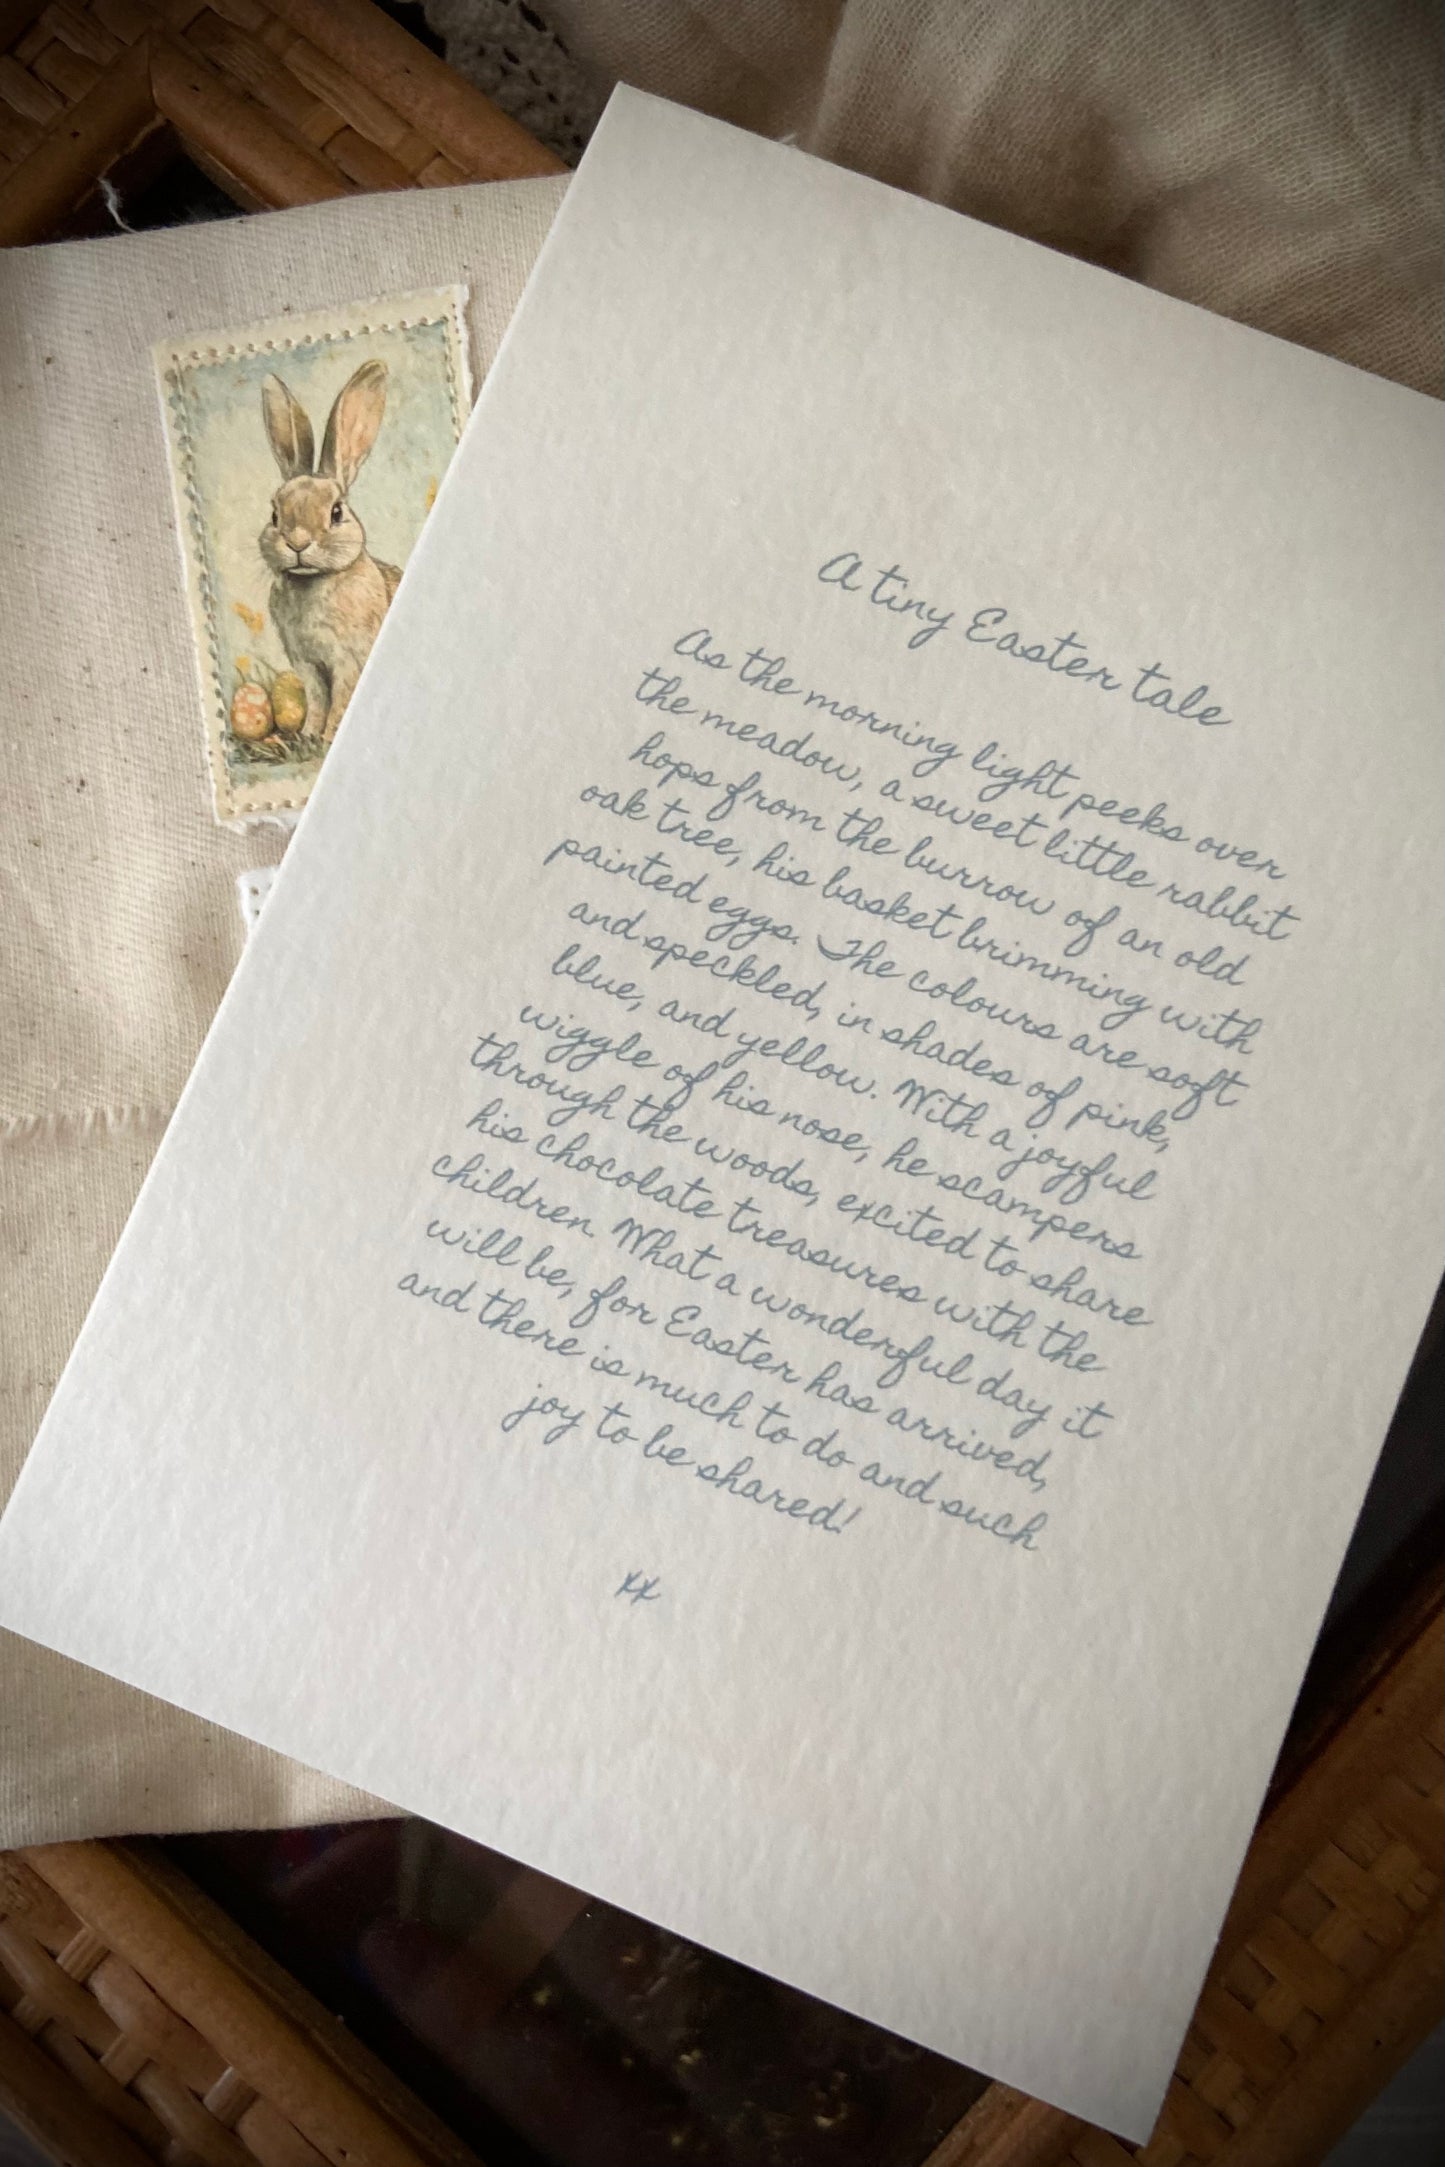 A tiny Easter tale
As the morning light peeks over
the meadow, a sweet little rabbit
hops from the burrow of an old
oak tree, his basket brimming with
painted eggs. The colours are soft
and speckled, in shades of pink,
blue, and yellow. With a joyful
wiggle of his nose, he scampers
through the woods, excited to share
his chocolate treasures with the
children. What a wonderful day it
will be, for Easter has arrived,
and there is much to do and such
joy to be shared!
xx